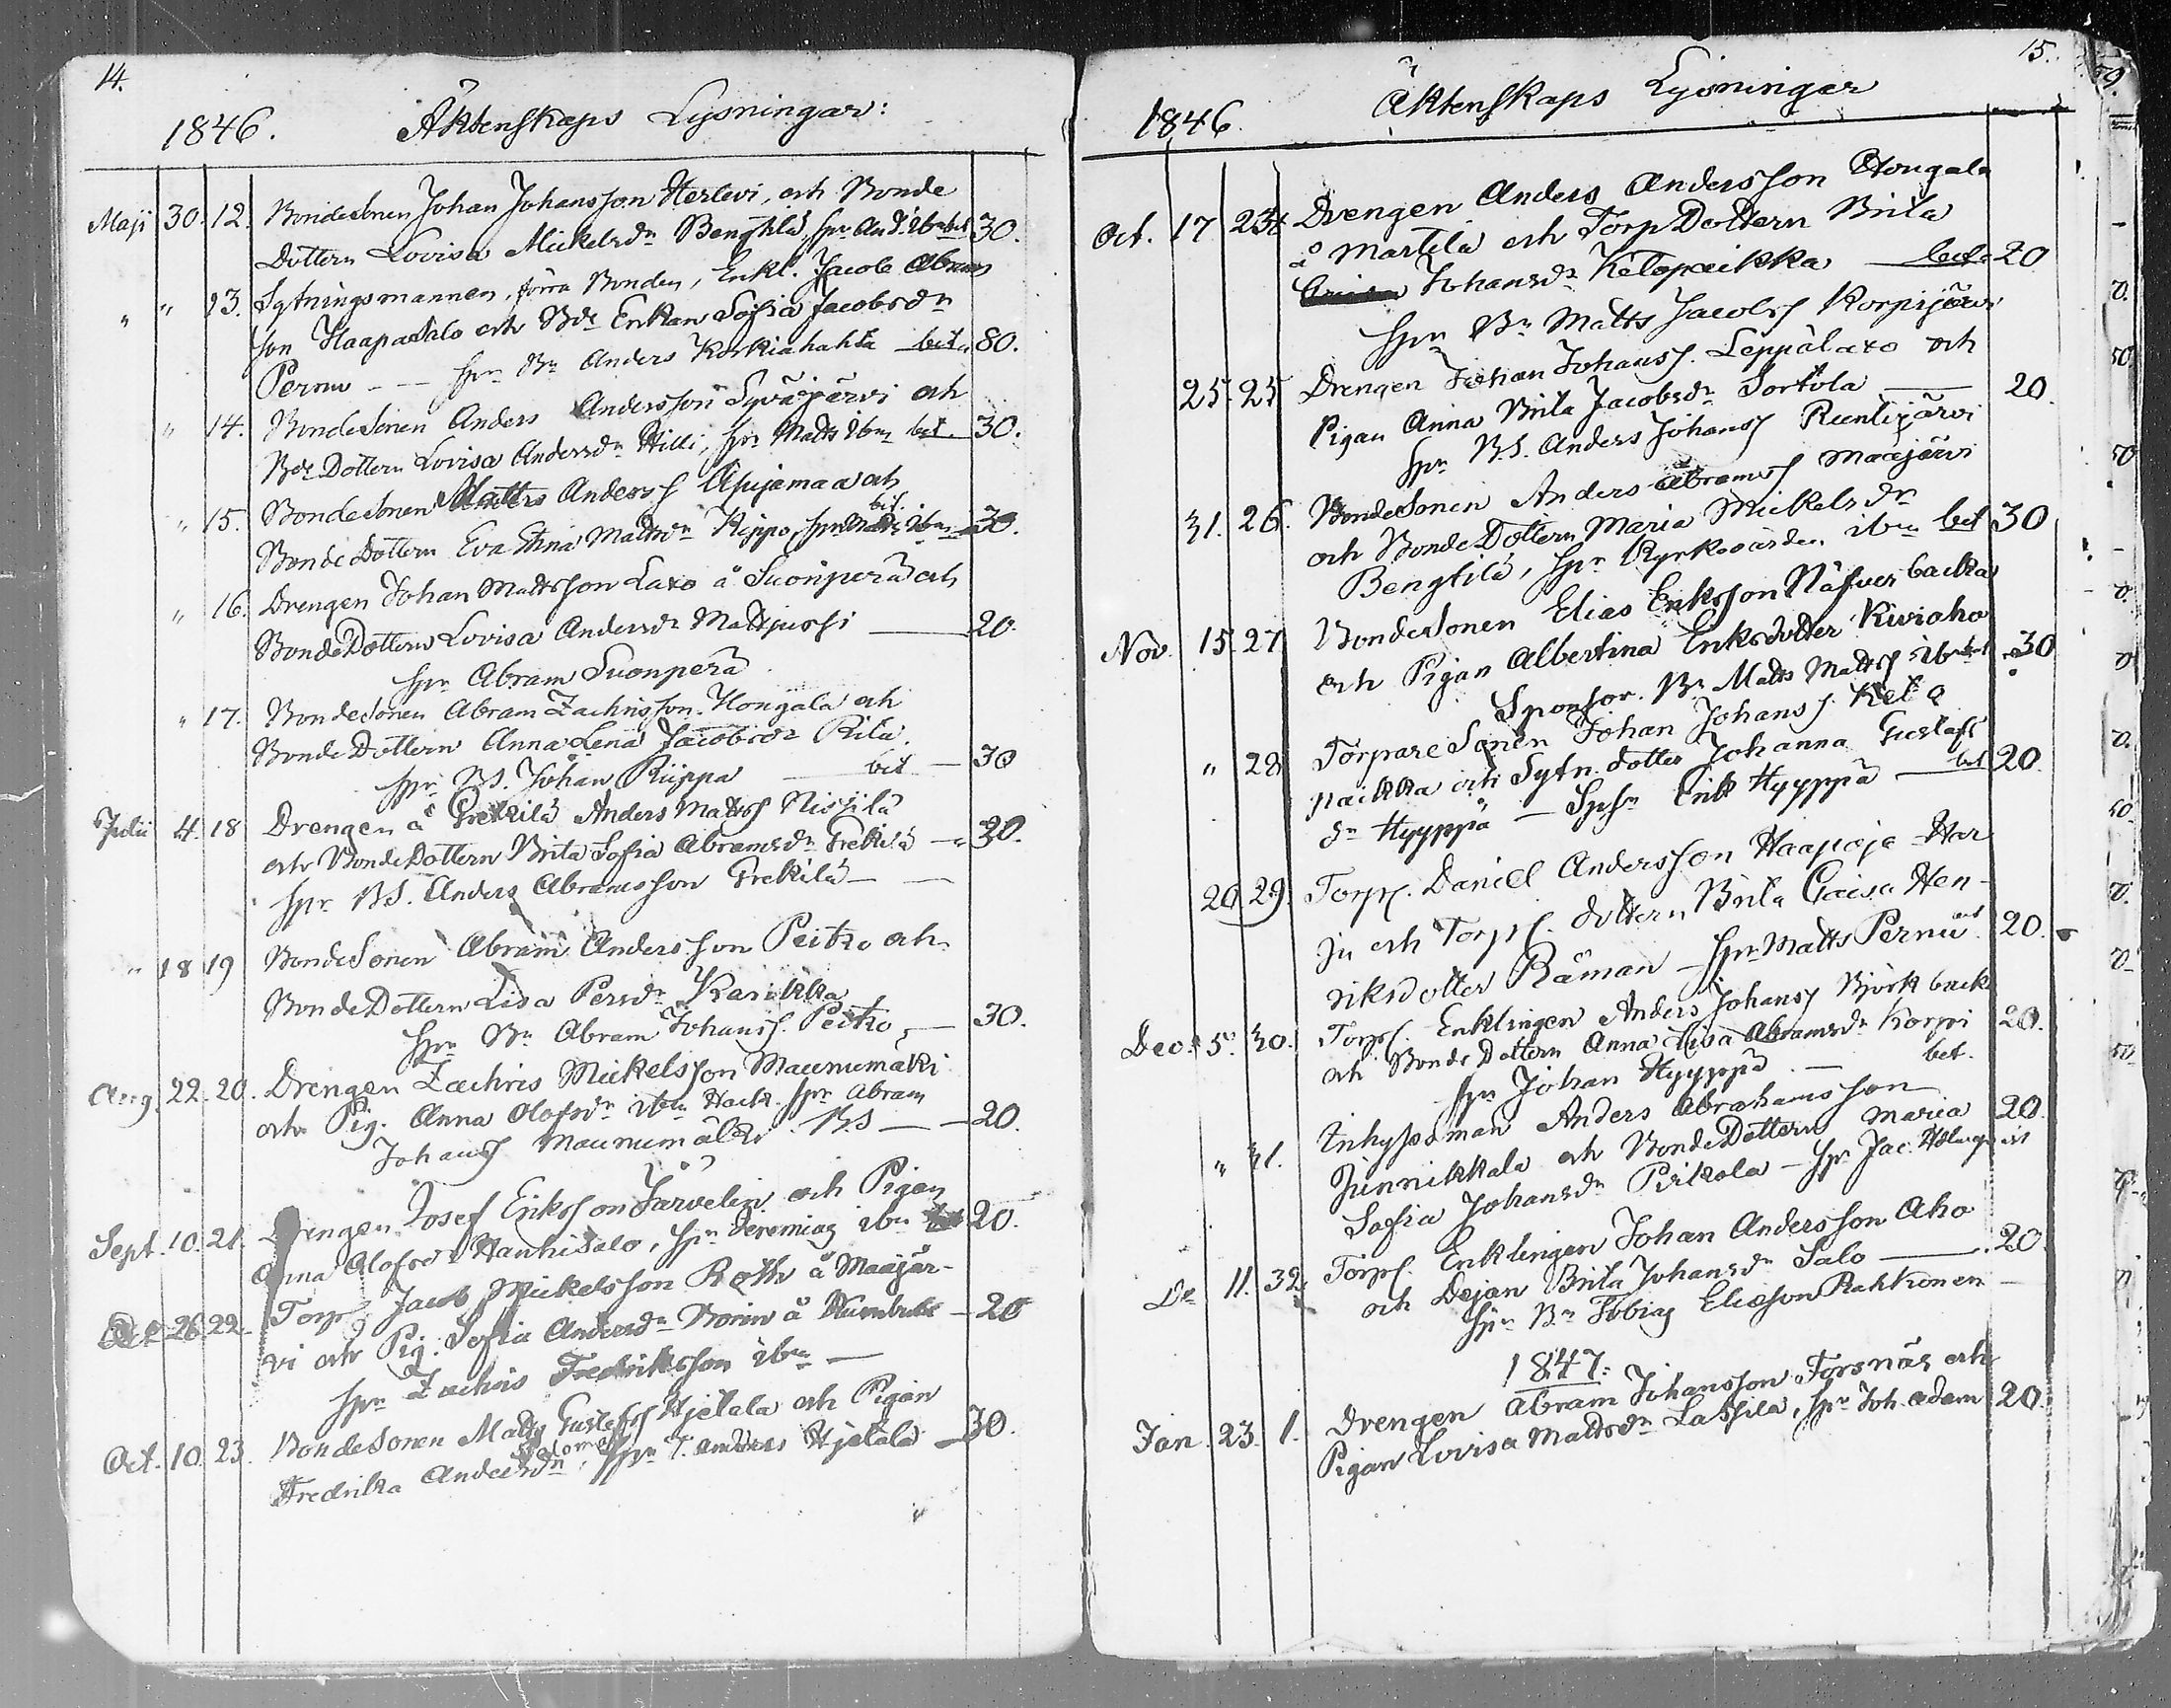 14.
1846. Äktenskaps Lysningar:
Maji 30. 12. Bondesonen Johan Johansson Herlevi, och Bonde
Dottern Lovisa Mickelsdr Bengtilä, spr And. ibm bet 30.
" " 13. Sytningsmannen, förra Bonden, Enkl. Jacob Abrams
son Haapasalo och Bde Enkan Sofia Jacobsdr
Pernu - - spr Bn Anders Koskiahahta bet. 80.
" 14. Bondesonen Anders Andersson Syväjärvi och
Bde Dottern Lovisa Andersdr Hilli, spr Matts ibm bet 30.
" 15. Bondesonen Anderss och
Bonde Dottern Eva Stina Mattsdr Kippo, spr ibm bet. 30.
" 16. Drengen Johan Mattsson Laxo å Suonperä och
BondeDottern Lovisa Andersdr Mattjussi 20.
spr Abram Suonperä
" 17. Bondesonen Abram Zachrisson Hongala och
Bonde Dottern Anna Lena Jacobsdr Rita
spr BS. Johan Riippa bet 30
Julii 4. 18 Drengen å Grekilä Anders Mattss Nissilä
och BondeDottern Brita Sofia Abramsdr Grekilä 20.
spr BS. Anders Abramsson Grekilä
" 18 19 BondeSonen Abram Andersson Peitzo och
Bonde Dottern Lisa Persdr Karikka
spr Bn Abram Johanss. Peitzo 30.
Aug. 22. 20. Drengen Zachris Mickelsson Maunumäki
och Pig. Anna Olofsdr ibm Hack. spr Abram
Johanss Maunumäki BS 20.
Sept. 10. 21. Drengen Josef Eriksson Järvelin och Pigan
Anna Olofsdr Hanhisalo, spr Jeremias ibm 20.
26. 22. Torp. Jacob Mickelsson Roth å Maajär-
vi och Pig. Sofia Andersdr å 20
spr Zachris Fredriksson ibm
Oct. 10. 23. Bondesonen Matts Gustafss Hjelala och Pigan
Fredrika Andersdr Salomo, spr T. Anders Hjelala 30.
15.
1846. Äktenskaps Lysningar
Oct. 17 24 Drengen Anders Andersson Hongala
å Martila och Torp Dottern Brita
Johansdr Keltapaikka bet 20
spr Bn Matts Jacobss Korpijärvi
25. 25 Drengen Johan Johanss. Leppälaxo och
Pigan Anna Brita Jacobsdr Sortola 20.
spr B.S. Anders Johanss Runtujärvi
31. 26. BondeSonen Anders Abramss Maajärvi
och BondeDottern Maria Mickelsdr
Bengtilä, spr Kyrkovärden ibm bet 30
Nov. 15. 27 BondeSonen Elias Eriksson Näfverbacka
och Pigan Albertina Eriksdotter Kiviaho
Sponsor. Bn Matts Mattss ibm bet 30
" 28 TorpareSonen Johan Johanss. Kelta
paikka och Sytn. dotter Johanna Gustafs
dr Hyyppä — Spsr Erik Hyyppä bet 20.
20. 29. Torps. Daniel Andersson Haapoja Har
ju och Torps. dottern Brita Caisa Hen-
riksdotter Råman — spr Matts Pernu bet 20.
Dec. 5. 30. Torps. Enklingen Anders Johanss Björkbacka
och Bonde Dottern Anna Lisa Abramsdr Korpi 20.
spr Johan Hyyppä — bet.
" 31. Inhysesman Anders Abrahamsson
Junnikkala och BondeDottern Maria 20.
Sofia Johansdr Pirkola — spr Jac.
De 11. 32. Torps. Enklingen Johan Andersson Aho
och Dejan Brita Johansdr Salo 20.
spr Bn Tobias Eliasson Rahkonen
1847:
Jan. 23. 1. Drengen Abram Johansson Forsnäs och
Pigan Lovisa Mattsdr Lassila, spr Joh. Adam 20.